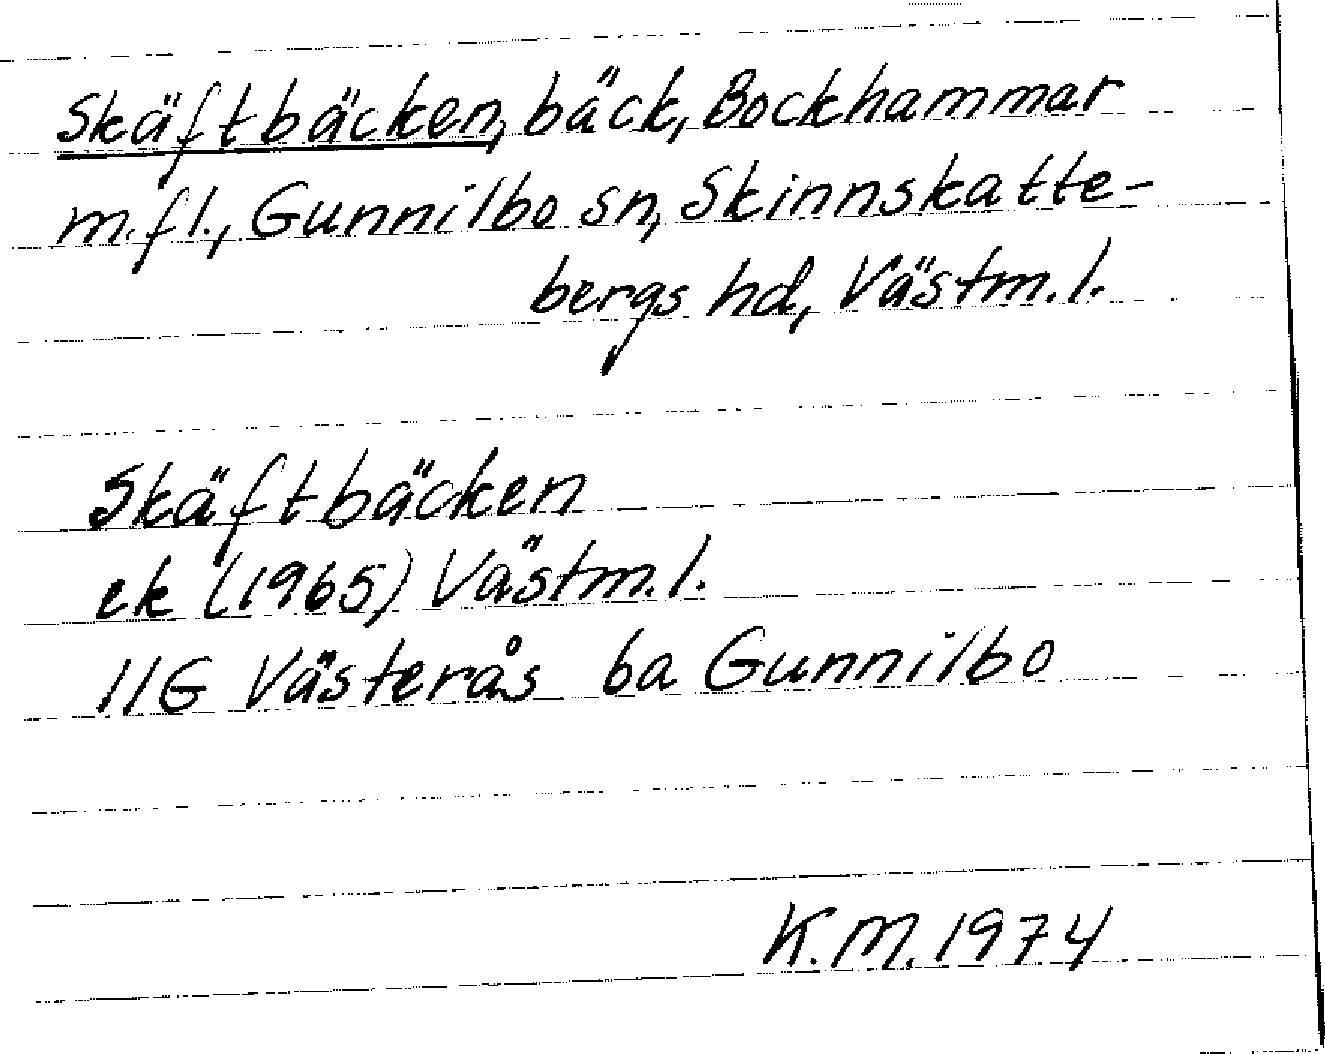 Skäftbäcken, bäck, Bockhammar
m.fl., Gunnilbo sn, Skinnskatte-
bergs hd, Västm.l.
Skäftbäcken
ek (1965) Västm.l.
11G Västerås 6a Gunnilbo
K.M. 1974